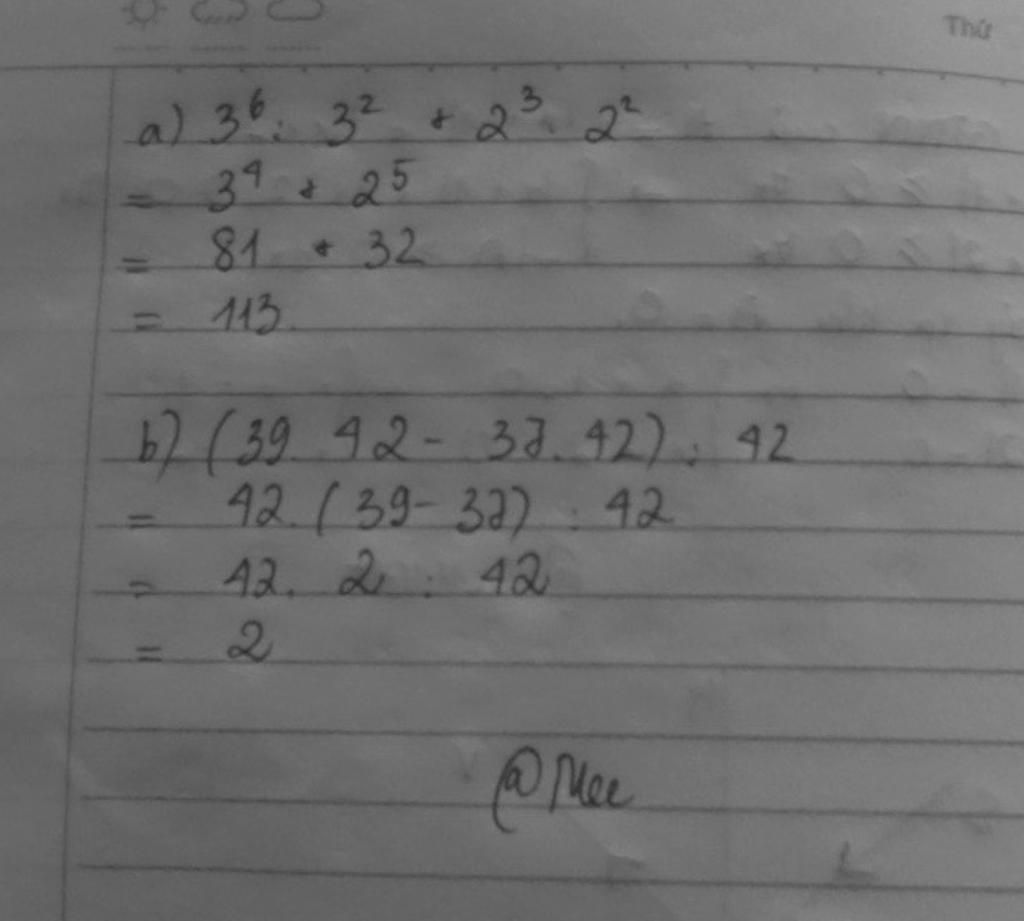 Thứ
a) 3⁶ : 3² + 2³ . 2²
= 3⁴ + 2⁵
= 81 + 32
= 113.
b) (39 . 42 - 37 . 42) : 42
= 42 . (39 - 37) : 42
= 42 . 2 : 42
= 2
@Mee